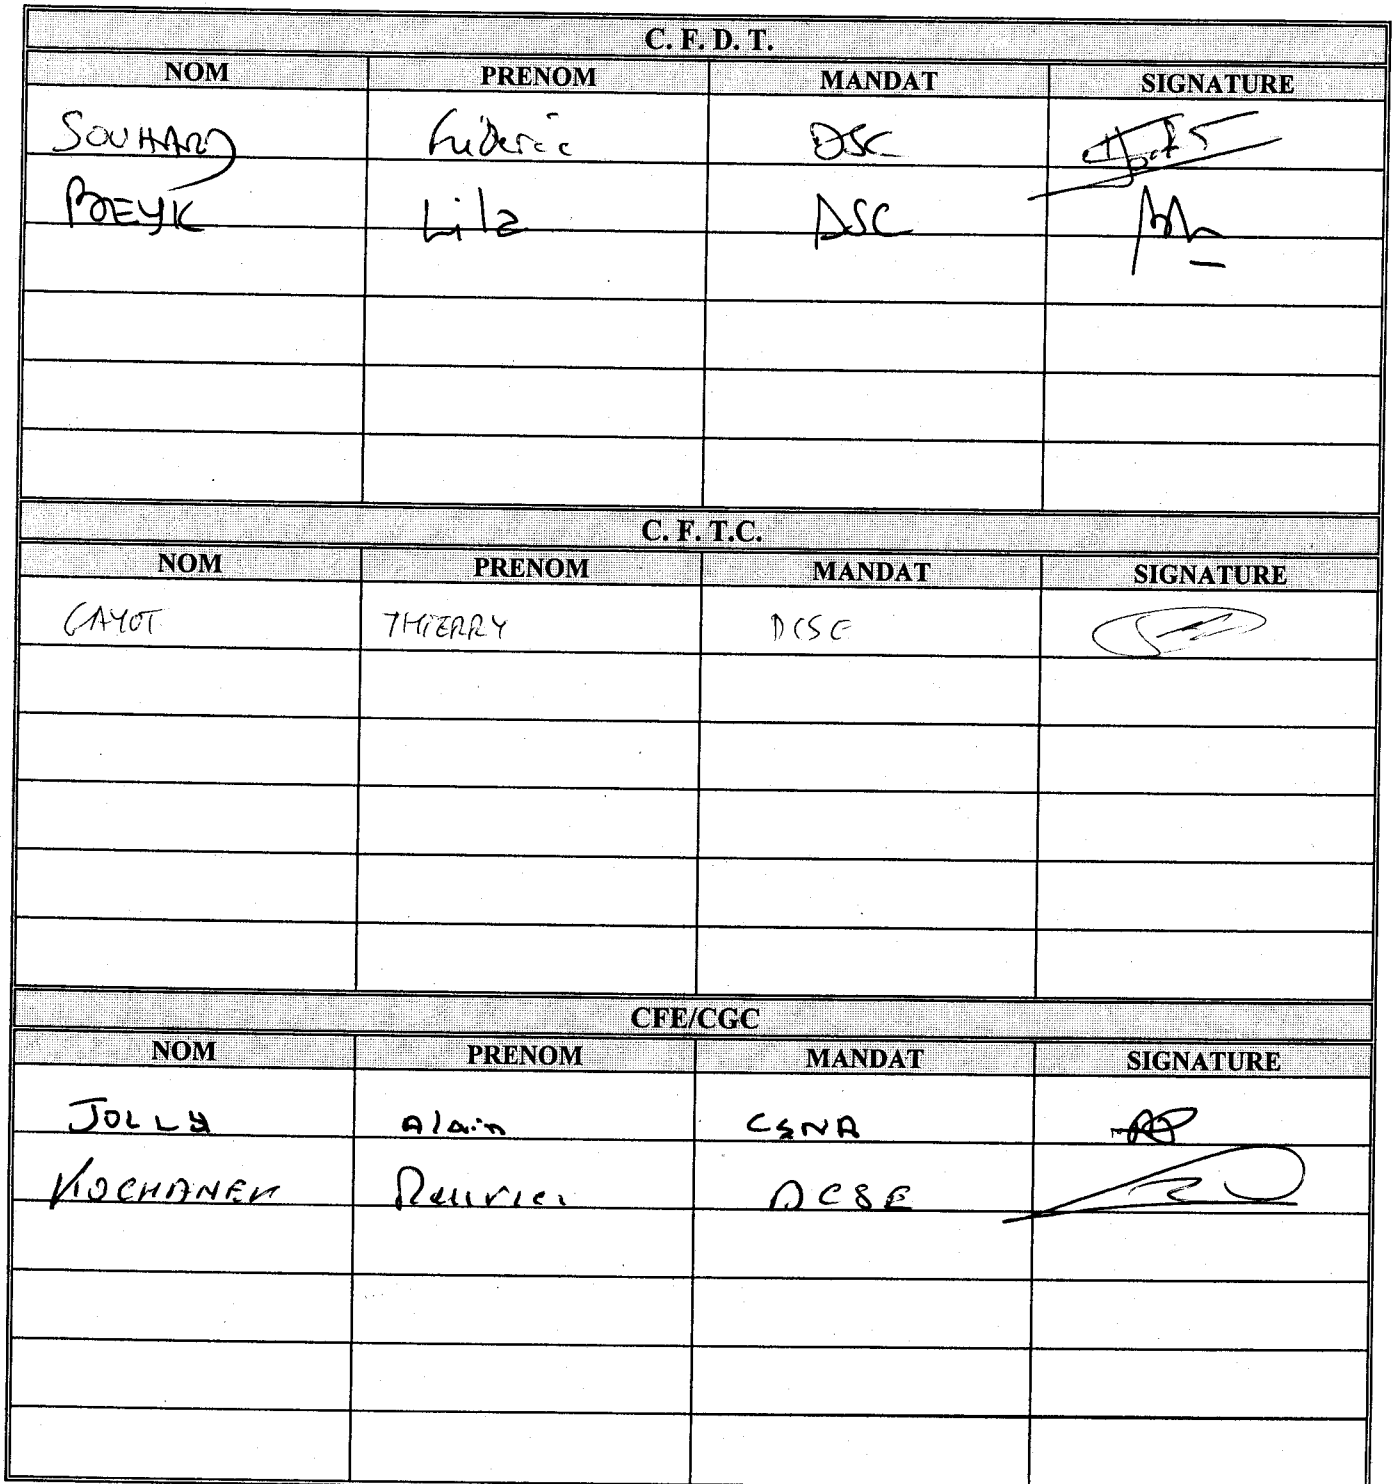 C. F. D. T.
NOM PRENOM MANDAT SIGNATURE
SOUHARD Frédéric DSC
BEYK Lila DSC
C. F. T.C.
NOM PRENOM MANDAT SIGNATURE
GAYOT THIERRY DCSE
CFE/CGC
NOM PRENOM MANDAT SIGNATURE
JOLLY Alain CSNA
KOCHANEK DCSE